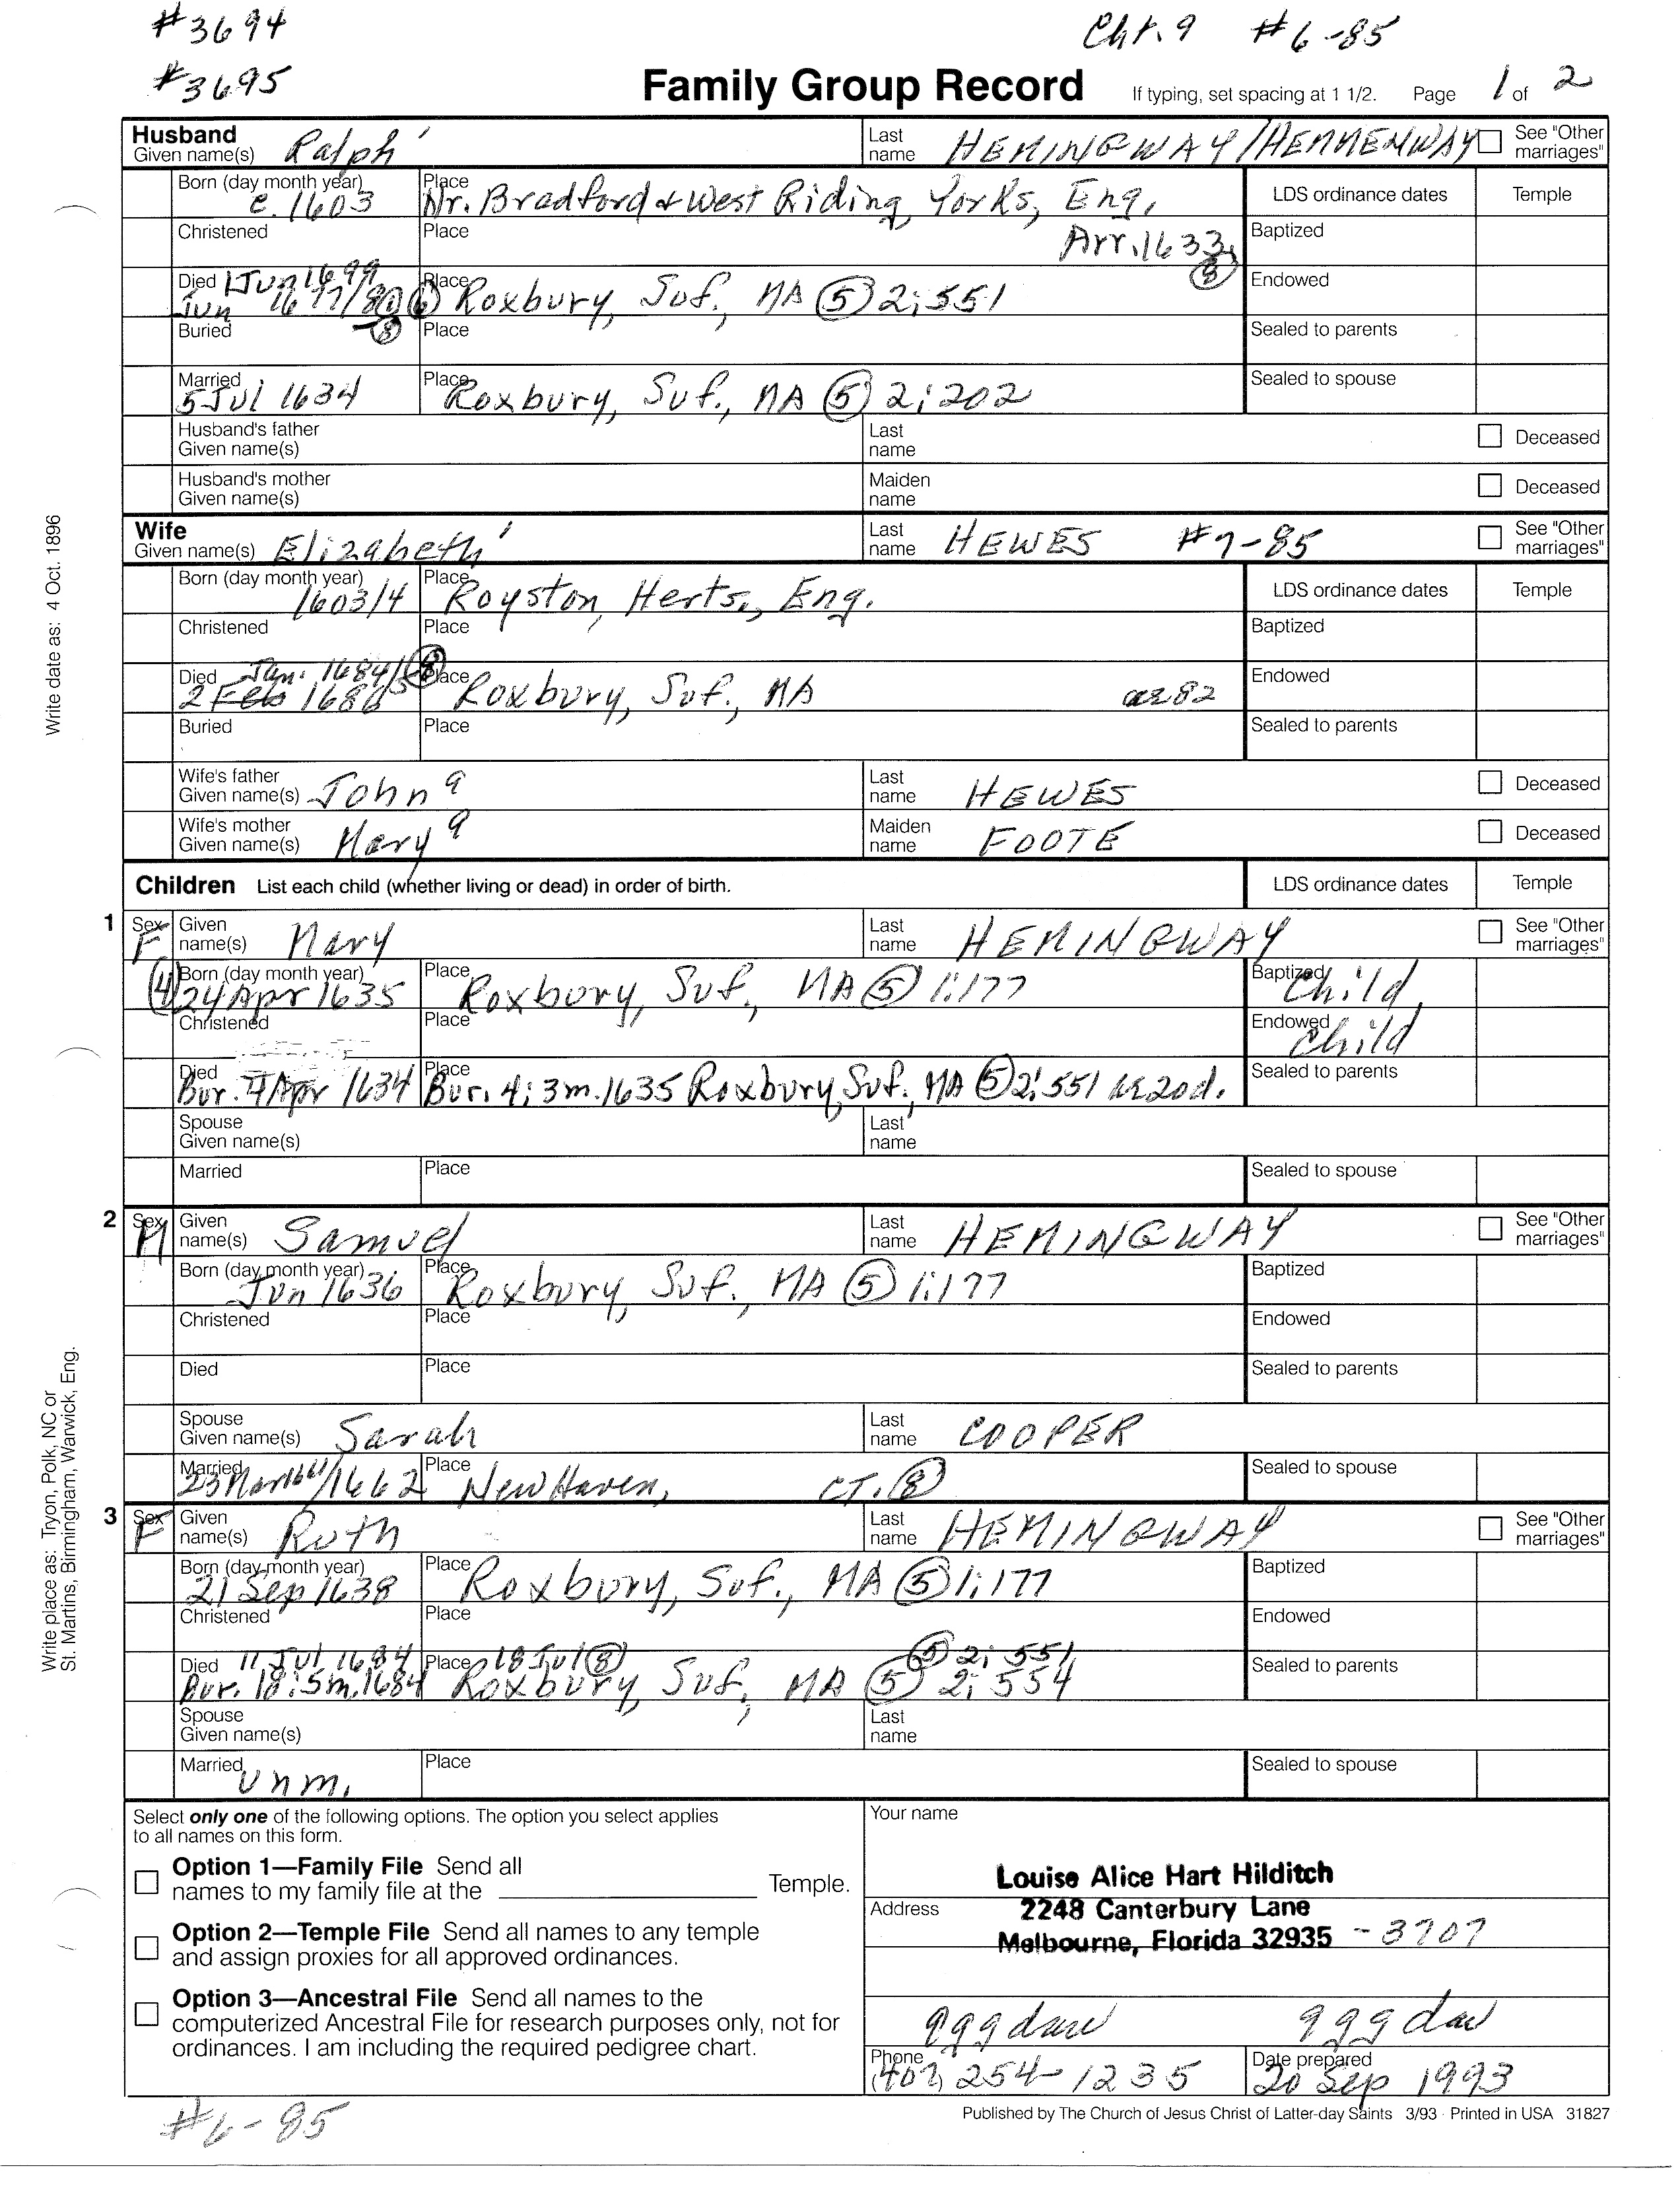 #3694
Cht. 9 #6-85
#3695
Family Group Record If typing, set spacing at 1 1/2. Page 1 of 2
Husband
Given name(s) Ralph Last name HEMINGWAY/HEMMENWAY See "Other marriages"
Born (day month year) c. 1603 Place Nr. Bradford & West Riding, Yorks, Eng. LDS ordinance dates Temple
Christened Place Arr. 1633 (8) Baptized
Died 1 Jun 1699 Jun 1677/8 (8) Place Roxbury, Suf., MA (5) 2:551 Endowed
Buried Place Sealed to parents
Married 5 Jul 1634 Place Roxbury, Suf., MA (5) 2:202 Sealed to spouse
Husband's father Given name(s) Last name Deceased
Husband's mother Given name(s) Maiden name Deceased
Write date as: 4 Oct. 1896
Wife
Given name(s) Elizabeth Last name HEWES #7-85 See "Other marriages"
Born (day month year) 1603/4 Place Royston, Herts., Eng. LDS ordinance dates Temple
Christened Place Baptized
Died Jan. 1684/5 (8) 2 Feb 1686 Place Roxbury, Suf., MA ae82 Endowed
Buried Place Sealed to parents
Wife's father Given name(s) John 9 Last name HEWES Deceased
Wife's mother Given name(s) Mary 9 Maiden name FOOTE Deceased
Children List each child (whether living or dead) in order of birth. LDS ordinance dates Temple
1 Sex F Given name(s) Mary Last name HEMINGWAY See "Other marriages"
(4) Born (day month year) 24 Apr 1635 Place Roxbury, Suf., MA (5) 1:177 Baptized Child
Christened Place Endowed Child
Died Bur. 4 Apr 1634 Place Bur. 4: 3m. 1635 Roxbury, Suf., MA (5) 2:551 ae 20d. Sealed to parents
Spouse Given name(s) Last name
Married Place Sealed to spouse
2 Sex M Given name(s) Samuel Last name HEMINGWAY See "Other marriages"
Born (day month year) Jun 1636 Place Roxbury, Suf., MA (5) 1:177 Baptized
Christened Place Endowed
Died Place Sealed to parents
Spouse Given name(s) Sarah Last name COOPER
Married 23 Mar 1661/1662 Place New Haven, CT. (8) Sealed to spouse
Write place as: Tryon, Polk, NC or
St. Martins, Birmingham, Warwick, Eng.
3 Sex F Given name(s) Ruth Last name HEMINGWAY See "Other marriages"
Born (day month year) 21 Sep 1638 Place Roxbury, Suf., MA (5) 1:177 Baptized
Christened Place Endowed
Died 11 Jul 1684 Place 18 Jul (8) 2:551 Sealed to parents
Bur. 18:5m.1684 Roxbury, Suf., MA (5) 2:554
Spouse Given name(s) Last name
Married unm. Place Sealed to spouse
Select only one of the following options. The option you select applies
to all names on this form.
Option 1—Family File Send all
names to my family file at the Temple.
Option 2—Temple File Send all names to any temple
and assign proxies for all approved ordinances.
Option 3—Ancestral File Send all names to the
computerized Ancestral File for research purposes only, not for
ordinances. I am including the required pedigree chart.
Your name
Louise Alice Hart Hilditch
Address 2248 Canterbury Lane
Melbourne, Florida 32935 -3707
9ggdau 9ggdau
Phone (407) 254-1235 Date prepared 20 Sep 1993
#6-85
Published by The Church of Jesus Christ of Latter-day Saints 3/93 Printed in USA 31827